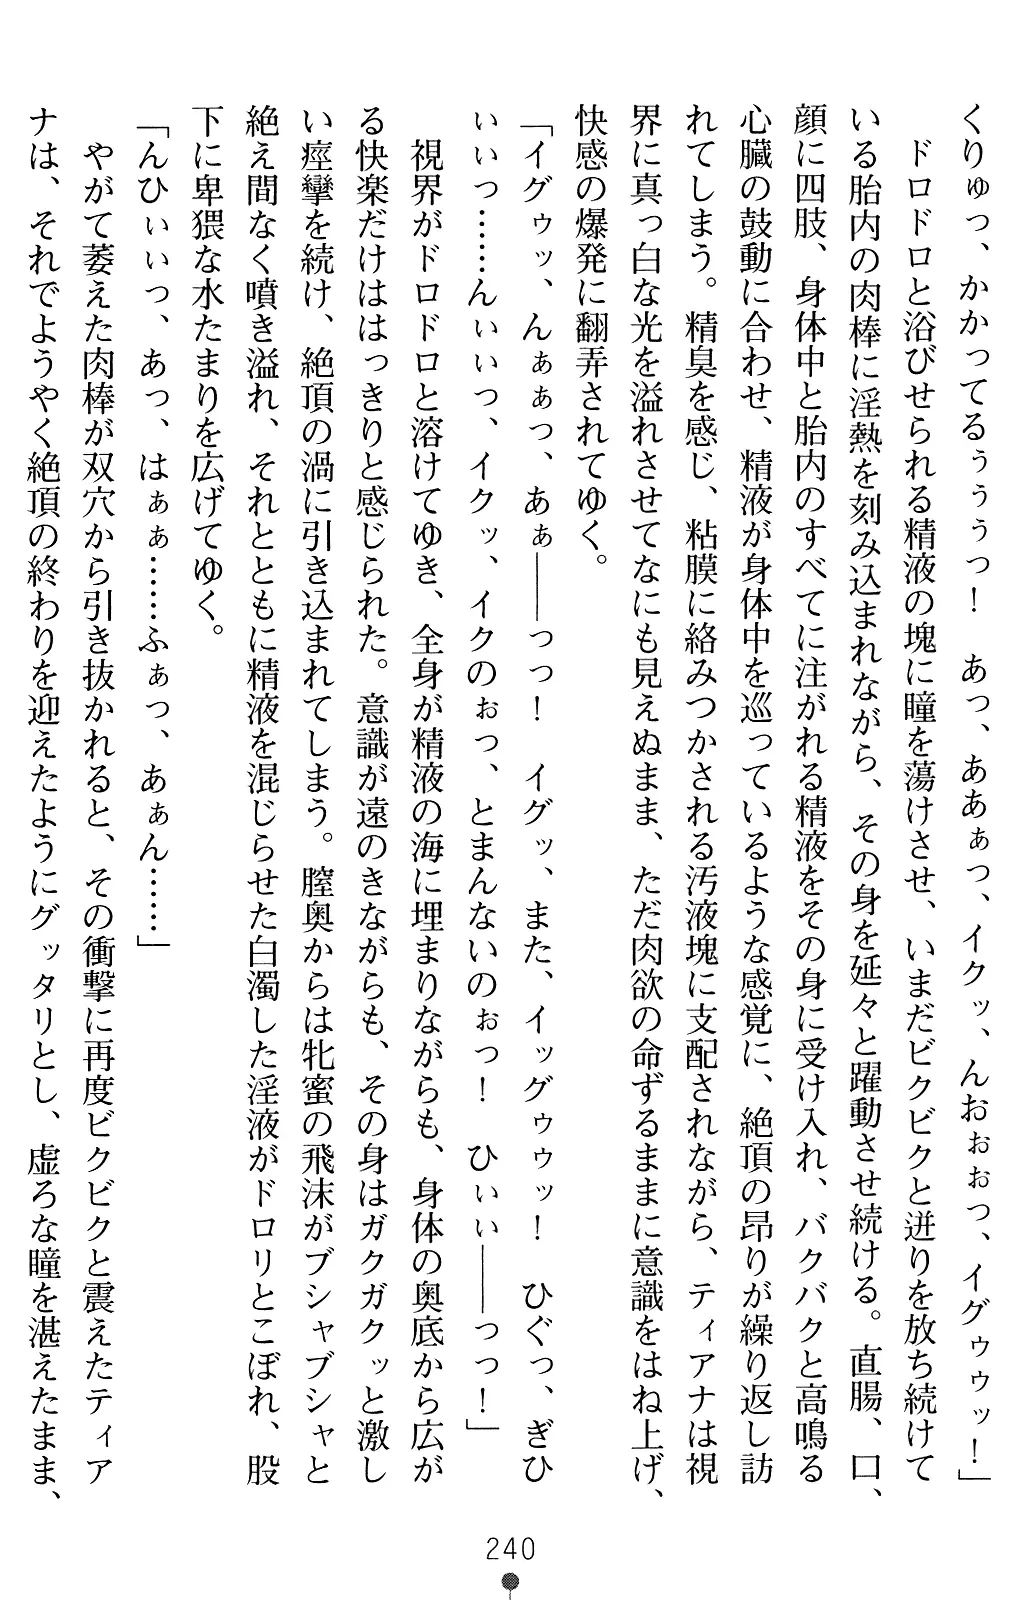 くりゅっ、かかってるぅぅぅっ！　あっ、ああぁっ、イクッ、んおぉぉっ、イグゥゥッ！」
　ドロドロと浴びせられる精液の塊に瞳を蕩けさせ、いまだビクビクと迸りを放ち続けて
いる胎内の肉棒に淫熱を刻み込まれながら、その身を延々と躍動させ続ける。直腸、口、
顔に四肢、身体中と胎内のすべてに注がれる精液をその身に受け入れ、バクバクと高鳴る
心臓の鼓動に合わせ、精液が身体中を巡っているような感覚に、絶頂の昂りが繰り返し訪
れてしまう。精臭を感じ、粘膜に絡みつかされる汚液塊に支配されながら、ティアナは視
界に真っ白な光を溢れさせてなにも見えぬまま、ただ肉欲の命ずるままに意識をはね上げ、
快感の爆発に翻弄されてゆく。
「イグゥッ、んぁぁっ、あぁ――っっ！　イグッ、また、イッグゥゥッ！　ひぐっ、ぎひ
ぃぃっ……んぃぃっ、イクッ、イクのぉっ、とまんないのぉっ！　ひぃぃ――っっ！」
　視界がドロドロと溶けてゆき、全身が精液の海に埋まりながらも、身体の奥底から広が
る快楽だけははっきりと感じられた。意識が遠のきながらも、その身はガクガクッと激し
い痙攣を続け、絶頂の渦に引き込まれてしまう。膣奥からは牝蜜の飛沫がブシャブシャと
絶え間なく噴き溢れ、それとともに精液を混じらせた白濁した淫液がドロリとこぼれ、股
下に卑猥な水たまりを広げてゆく。
「んひぃぃっ、あっ、はぁぁ……ふぁっ、あぁん……」
　やがて萎えた肉棒が双穴から引き抜かれると、その衝撃に再度ビクビクと震えたティア
ナは、それでようやく絶頂の終わりを迎えたようにグッタリとし、虚ろな瞳を湛えたまま、
240